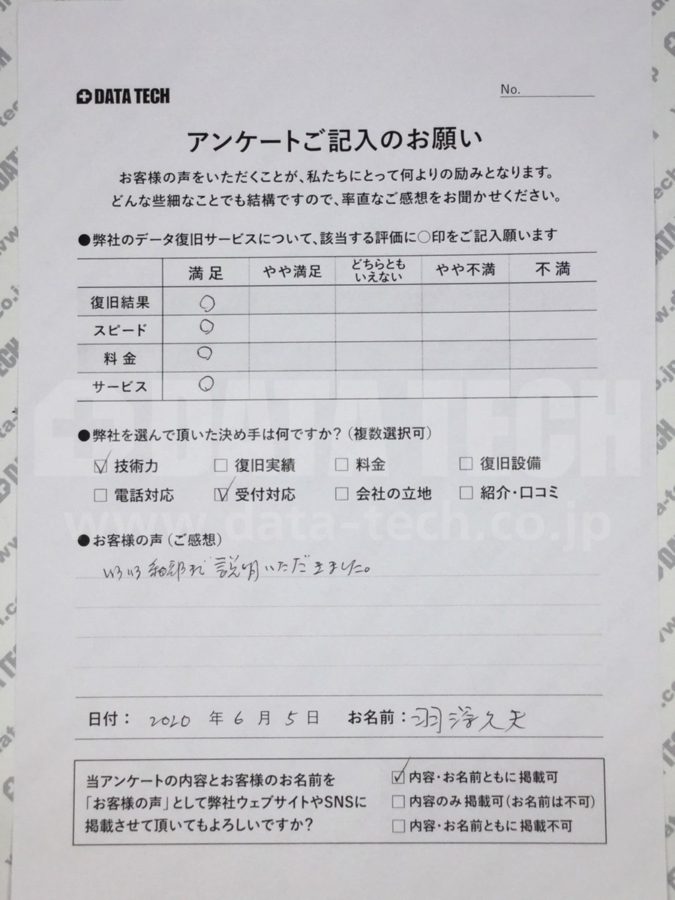 DATA TECH
No.
アンケートご記入のお願い
お客様の声をいただくことが、私たちにとって何よりの励みとなります。
どんな些細なことでも結構ですので、率直なご感想をお聞かせください。
●弊社のデータ復旧サービスについて、該当する評価に○印をご記入願います
満足 やや満足 どちらとも いえない やや不満 不満
復旧結果 ○
スピード ○
料金 ○
サービス ○
●弊社を選んで頂いた決め手は何ですか?(複数選択可)
☑ 技術力 □ 復旧実績 □ 料金 □ 復旧設備
□ 電話対応 ☑ 受付対応 □ 会社の立地 □ 紹介・口コミ
DATA TECH
www.data-tech.co.jp
●お客様の声(ご感想)
いろいろ細部まで説明いただきました。
日付: 2020 年 6 月 5 日 お名前:
当アンケートの内容とお客様のお名前を
「お客様の声」として弊社ウェブサイトやSNSに
掲載させて頂いてもよろしいですか?
☑ 内容・お名前ともに掲載可
□ 内容のみ掲載可(お名前は不可)
□ 内容・お名前ともに掲載不可